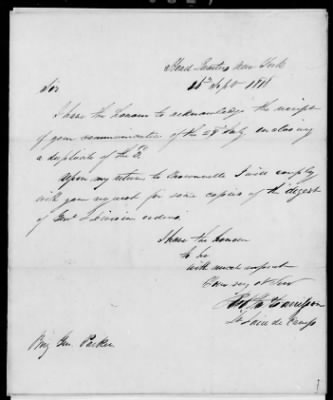 Head Quarters New York
Sept 1818
Sir
I have the honour to acknowledge the receipt
of your communication of the 28 July enclosing
a duplicate of the
Upon my return to Brownville I will comply
with your request for some copies of the digest
of Genl & Division orders
I have the honour
to be
with much respect
Your
Aid de Camp
Brig Gen. Parker